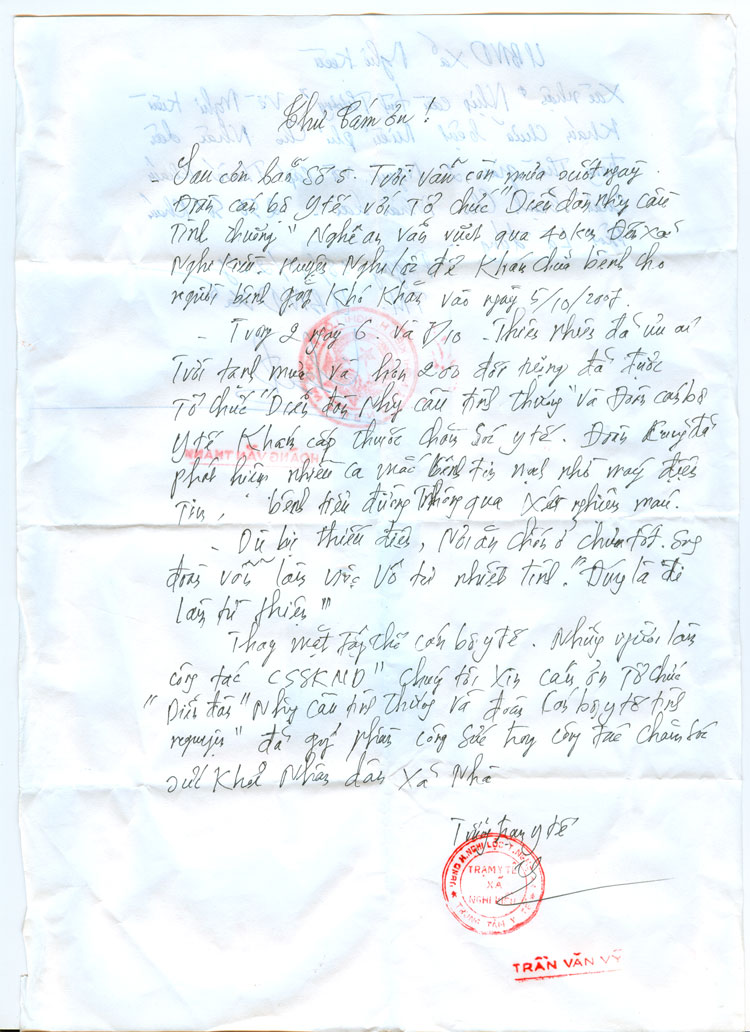 Thư Cám ơn!
- Sau cơn bão số 5. Trời vẫn còn mưa suốt ngày.
Đoàn cán bộ y tế với Tổ chức "Diễn đàn Nhịp cầu
Tình thương" Nghệ an vẫn vượt qua 40km Đến xã
Nghi Kiều Huyện Nghi lộc để Khám chữa bệnh cho
người bệnh gặp Khó Khăn vào ngày 5/10/2007.
- Trong 2 ngày 6 và 7/10 - Thiên nhiên đã ưu ái
Trời tạnh mưa và hơn 200 đối tượng đã được
Tổ chức "Diễn đàn Nhịp cầu tình thương" và Đoàn cán bộ
y tế Khám cấp thuốc chăm sóc y tế. Đoàn cũng đã
phát hiện nhiều ca mắc bệnh tim mạch nhờ máy điện
Tim, bệnh tiểu đường Thông qua xét nghiệm máu.
- Dù bị thiếu điện, Nơi ăn chốn ở chưa tốt. Song
đoàn vẫn làm việc vô tư nhiệt tình. "Đúng là đi
làm từ thiện"
Thay mặt tập thể cán bộ y tế. Những người làm
công tác CSSKND" chúng tôi xin cám ơn Tổ chức
"Diễn đàn "Nhịp cầu tình thương và đoàn cán bộ y tế tình
nguyện" đã góp phần công sức trong công tác chăm sóc
sức Khỏe Nhân dân xã Nhà
Trưởng trạm y tế
UBND H.NGHI LỘC-T.
TRẠM Y TẾ
XÃ
NGHI KIỀU
TRUNG TÂM Y TẾ
TRẦN VĂN VỸ